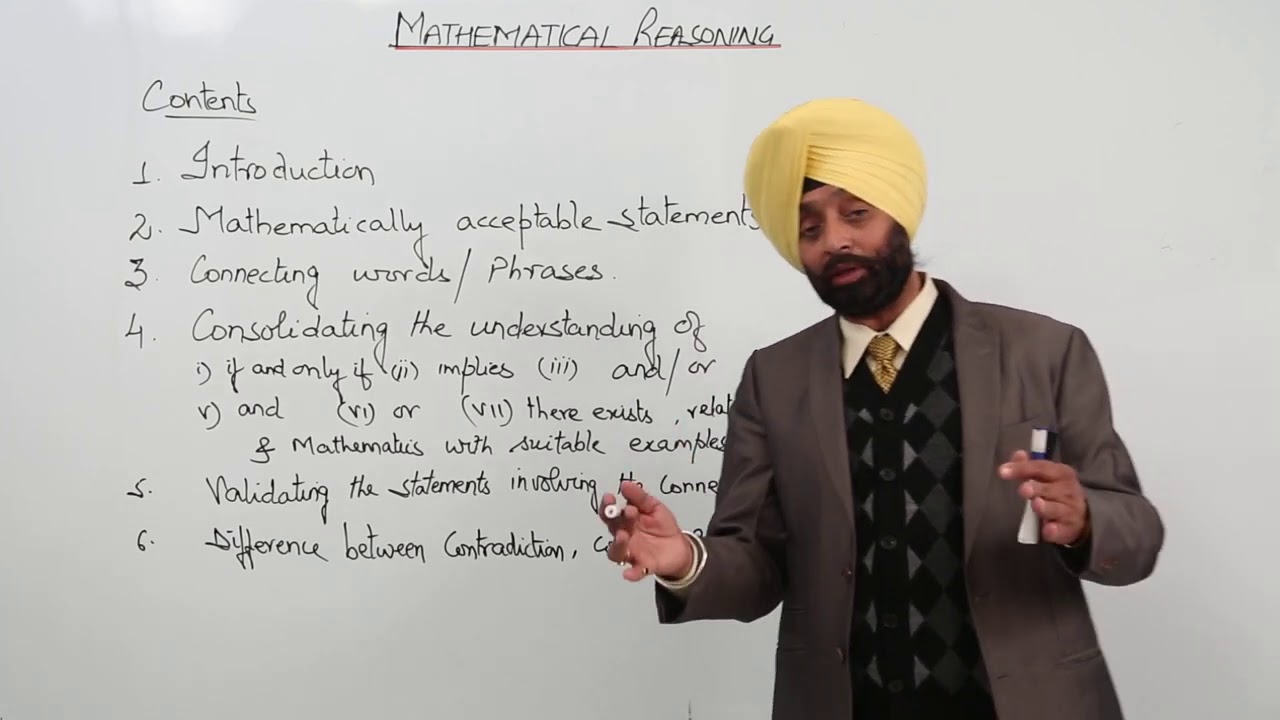 MATHEMATICAL REASONING
Contents
1. Introduction
2. Mathematically acceptable statements
3. Connecting words/Phrases.
4. Consolidating the understanding of
i) if and only if (ii) implies (iii) and/or
v) and (vi) or (vii) there exists,
& Mathematics with suitable examples
5. Validating the statements involving the
6. Difference between Contradiction,